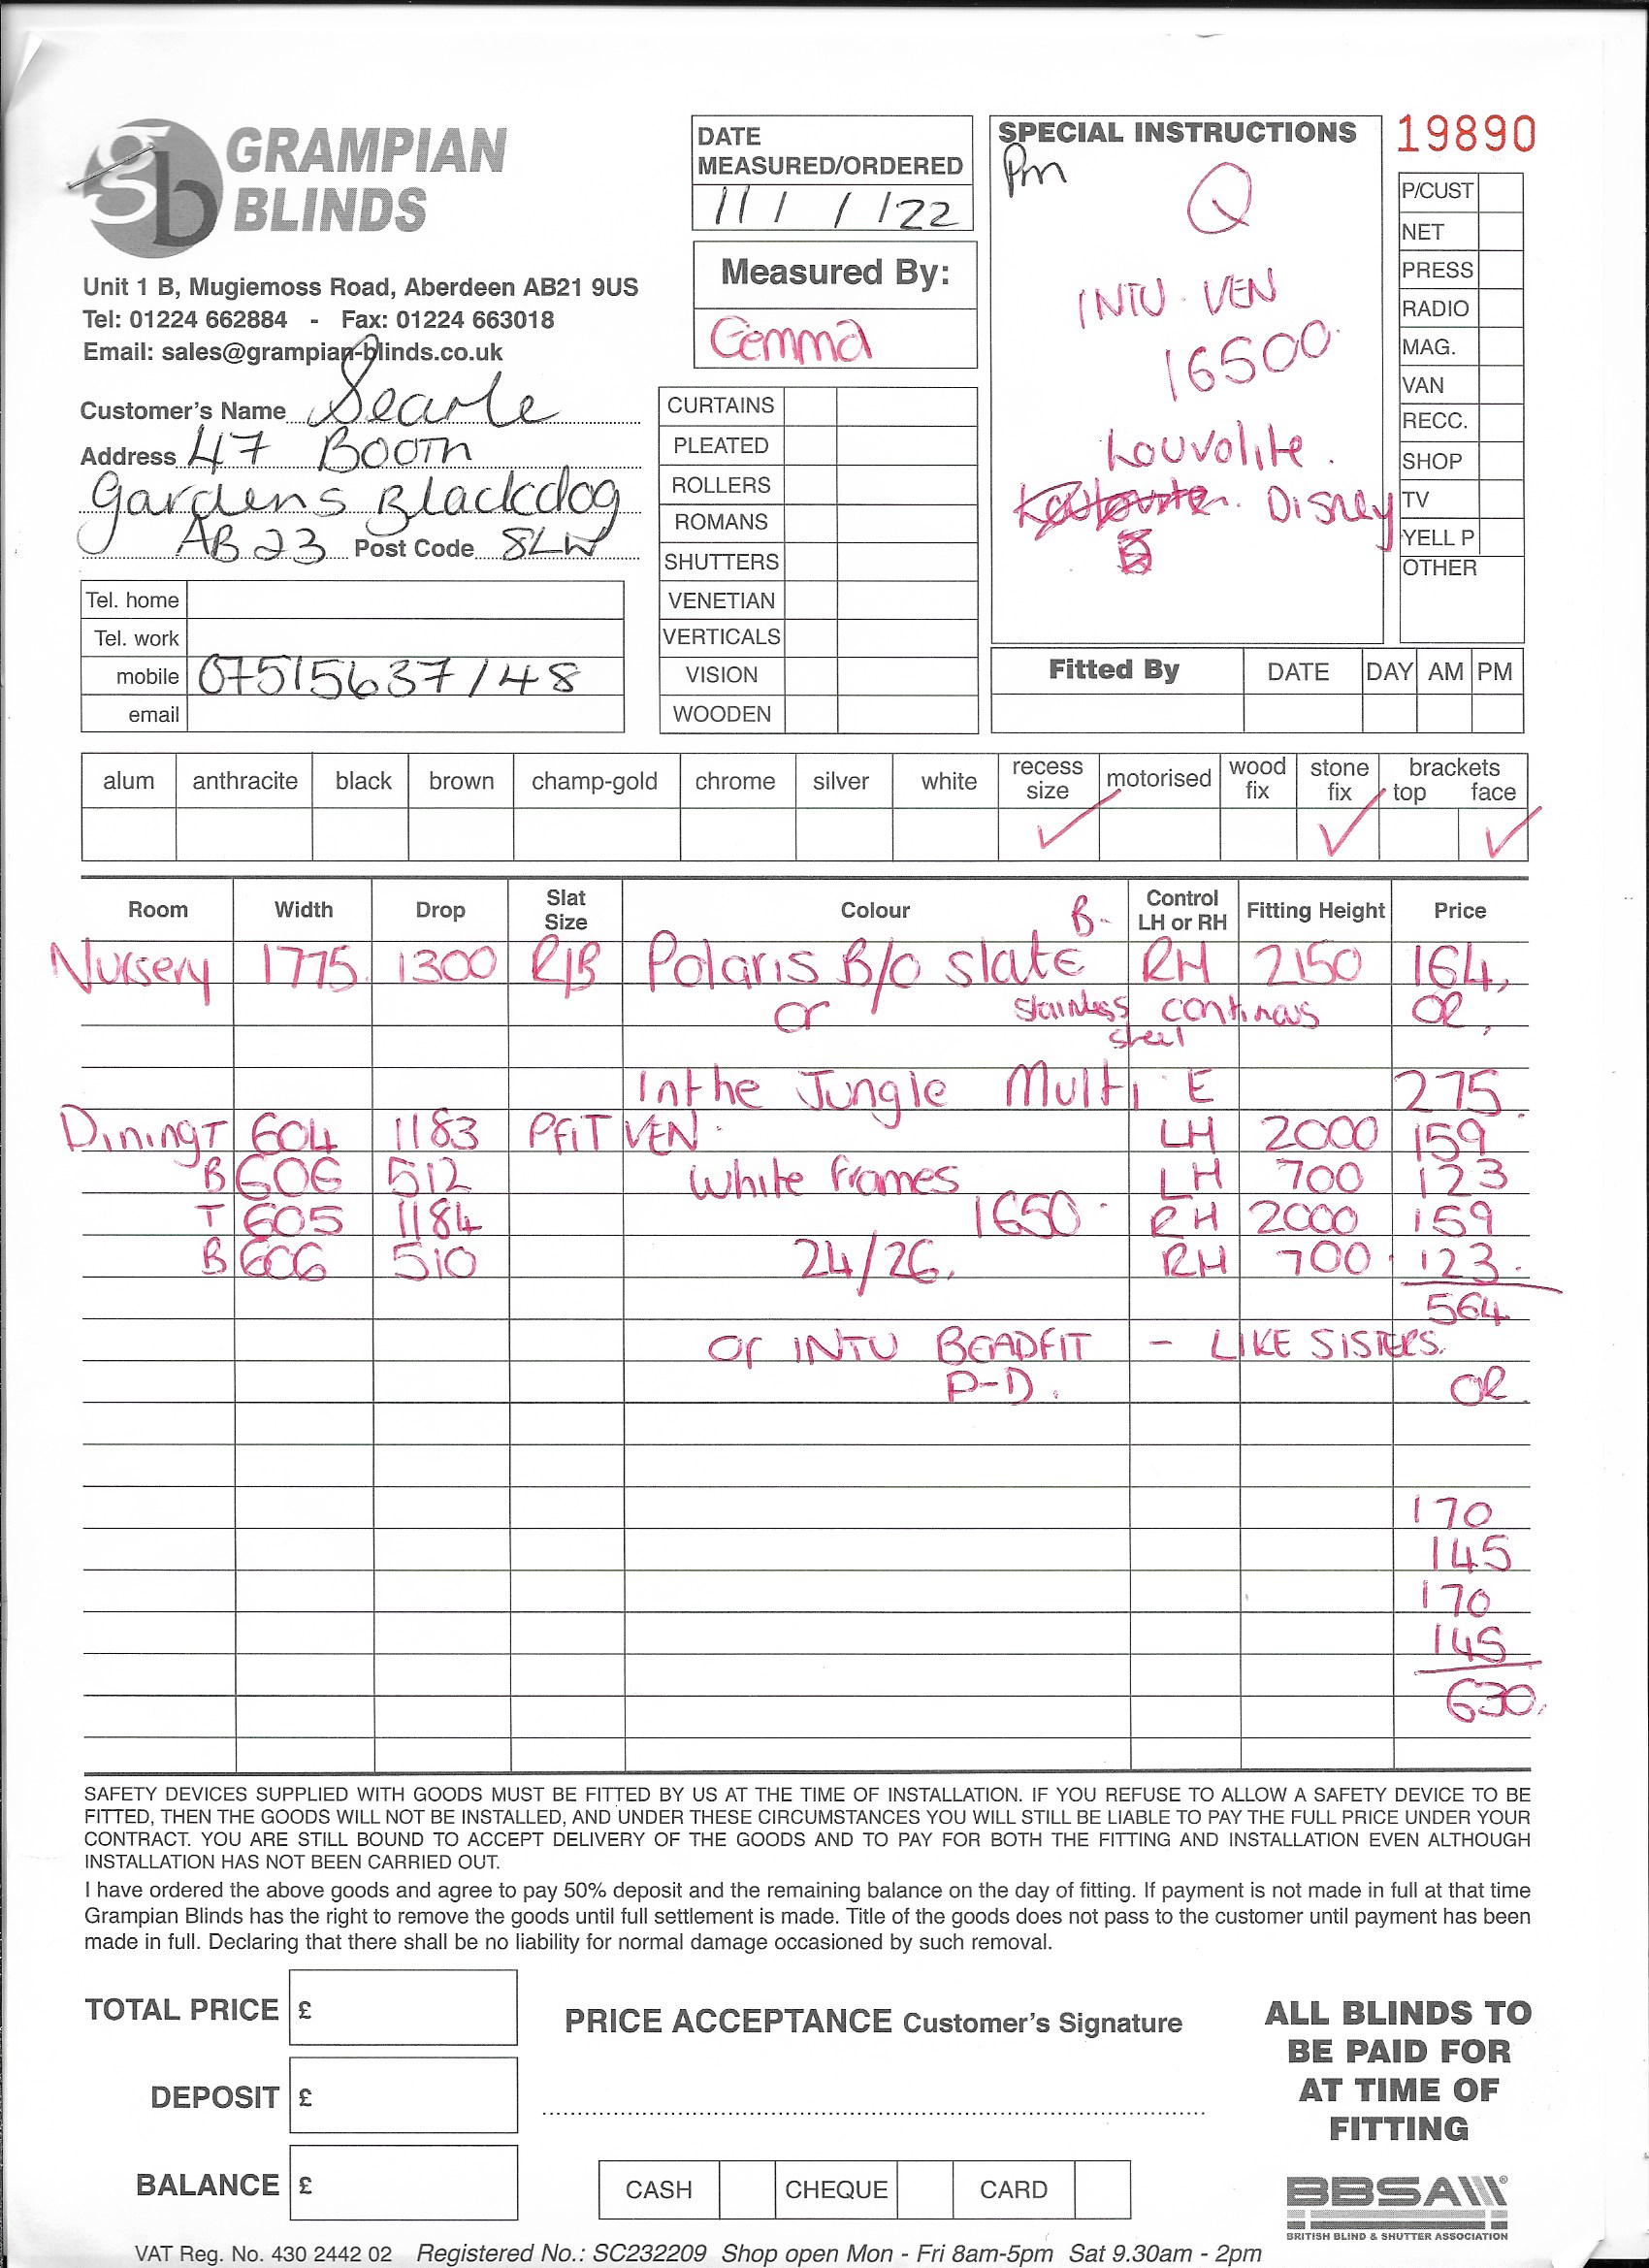 GRAMPIAN
BLINDS
Unit 1 B, Mugiemoss Road, Aberdeen AB21 9US
Tel: 01224 662884 - Fax: 01224 663018
Email: sales@grampian-blinds.co.uk
Customer's Name Searle
Address 47 Booth
Gardens Blackdog
AB23 Post Code 8LW
Tel. home
Tel. work
mobile 07515637148
email
DATE
MEASURED/ORDERED
11/1/22
Measured By:
Gemma
CURTAINS
PLEATED
ROLLERS
ROMANS
SHUTTERS
VENETIAN
VERTICALS
VISION
WOODEN
SPECIAL INSTRUCTIONS
Pm
Q
INTU. VEN
16500
Louvolite.
Disney
19890
P/CUST
NET
PRESS
RADIO
MAG.
VAN
RECC.
SHOP
TV
YELL P
OTHER
Fitted By DATE DAY AM PM
alum anthracite black brown champ-gold chrome silver white recess size motorised wood fix stone fix brackets top face
Room Width Drop Slat Size Colour Control LH or RH Fitting Height Price
B-
Nursery 1775 1300 R/B Polaris B/O Slate RH 2150 164,
or stainless steel continous OR,
In the Jungle Multi E 275
Dining T 604 1183 PFIT VEN. LH 2000 159
B 606 512 White frames LH 700 123
T 605 1184 1650. RH 2000 159
B 606 510 24/26. RH 700 123.
564
or INTU BEADFIT - LIKE SISTERS.
P-D. OR
170
145
170
145
630.
SAFETY DEVICES SUPPLIED WITH GOODS MUST BE FITTED BY US AT THE TIME OF INSTALLATION. IF YOU REFUSE TO ALLOW A SAFETY DEVICE TO BE
FITTED, THEN THE GOODS WILL NOT BE INSTALLED, AND UNDER THESE CIRCUMSTANCES YOU WILL STILL BE LIABLE TO PAY THE FULL PRICE UNDER YOUR
CONTRACT. YOU ARE STILL BOUND TO ACCEPT DELIVERY OF THE GOODS AND TO PAY FOR BOTH THE FITTING AND INSTALLATION EVEN ALTHOUGH
INSTALLATION HAS NOT BEEN CARRIED OUT.
I have ordered the above goods and agree to pay 50% deposit and the remaining balance on the day of fitting. If payment is not made in full at that time
Grampian Blinds has the right to remove the goods until full settlement is made. Title of the goods does not pass to the customer until payment has been
made in full. Declaring that there shall be no liability for normal damage occasioned by such removal.
TOTAL PRICE £
DEPOSIT £
BALANCE £
PRICE ACCEPTANCE Customer's Signature
CASH CHEQUE CARD
ALL BLINDS TO
BE PAID FOR
AT TIME OF
FITTING
BBSA
BRITISH BLIND & SHUTTER ASSOCIATION
VAT Reg. No. 430 2442 02 Registered No.: SC232209 Shop open Mon - Fri 8am-5pm Sat 9.30am - 2pm